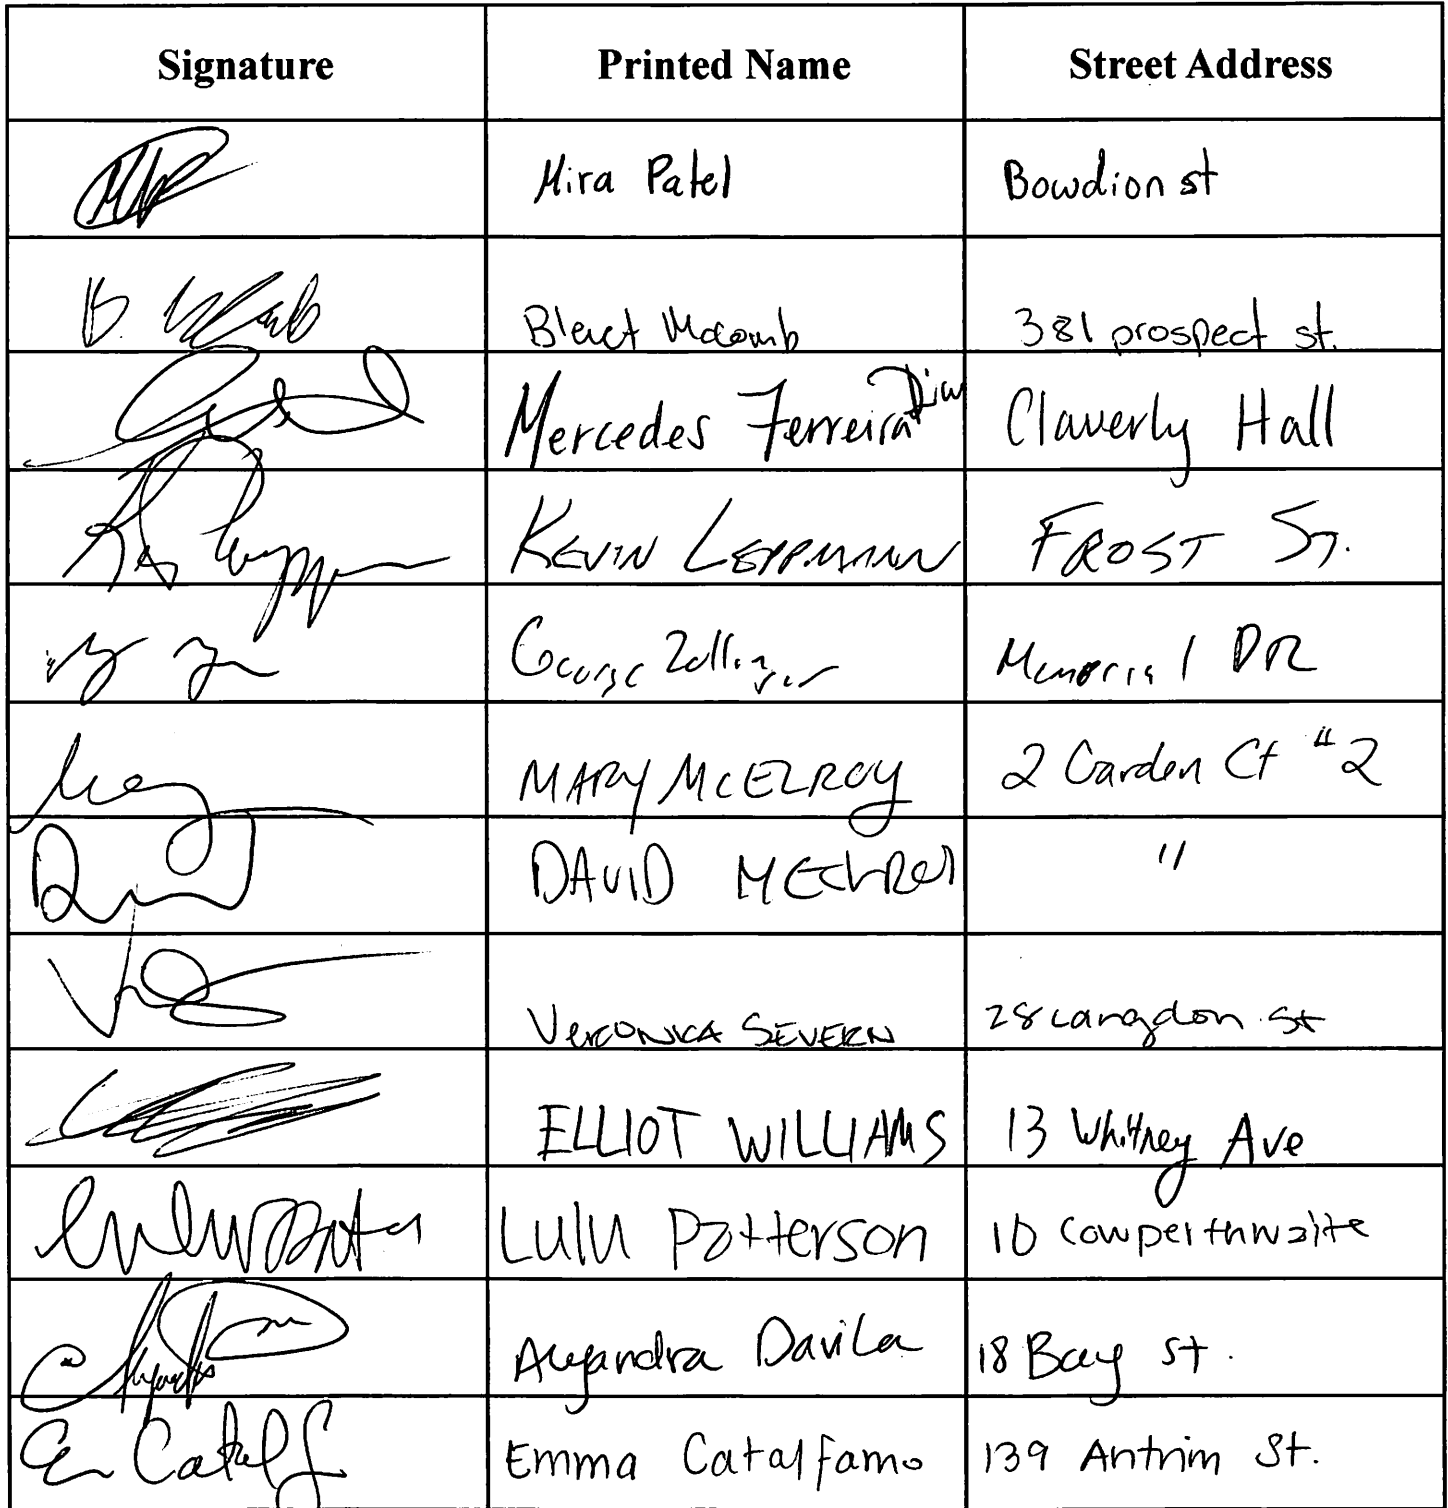 Signature Printed Name Street Address
Mira Patel Bowdion st
B. Macomb 381 prospect st.
Mercedes Ferreira Claverly Hall
KEVIN LEPPMANN FROST ST.
George Zollinger Memorial DR
MARY MCELROY 2 Garden Ct #2
DAVID MCELROY "
VERONICA SEVERN 28 Langdon st
ELLIOT WILLIAMS 13 Whitney Ave
LuLu Patterson 10 Cowperthwaite
Alejandra Davila 18 Bay St.
E Catalf Emma Catalfamo 139 Antrim St.